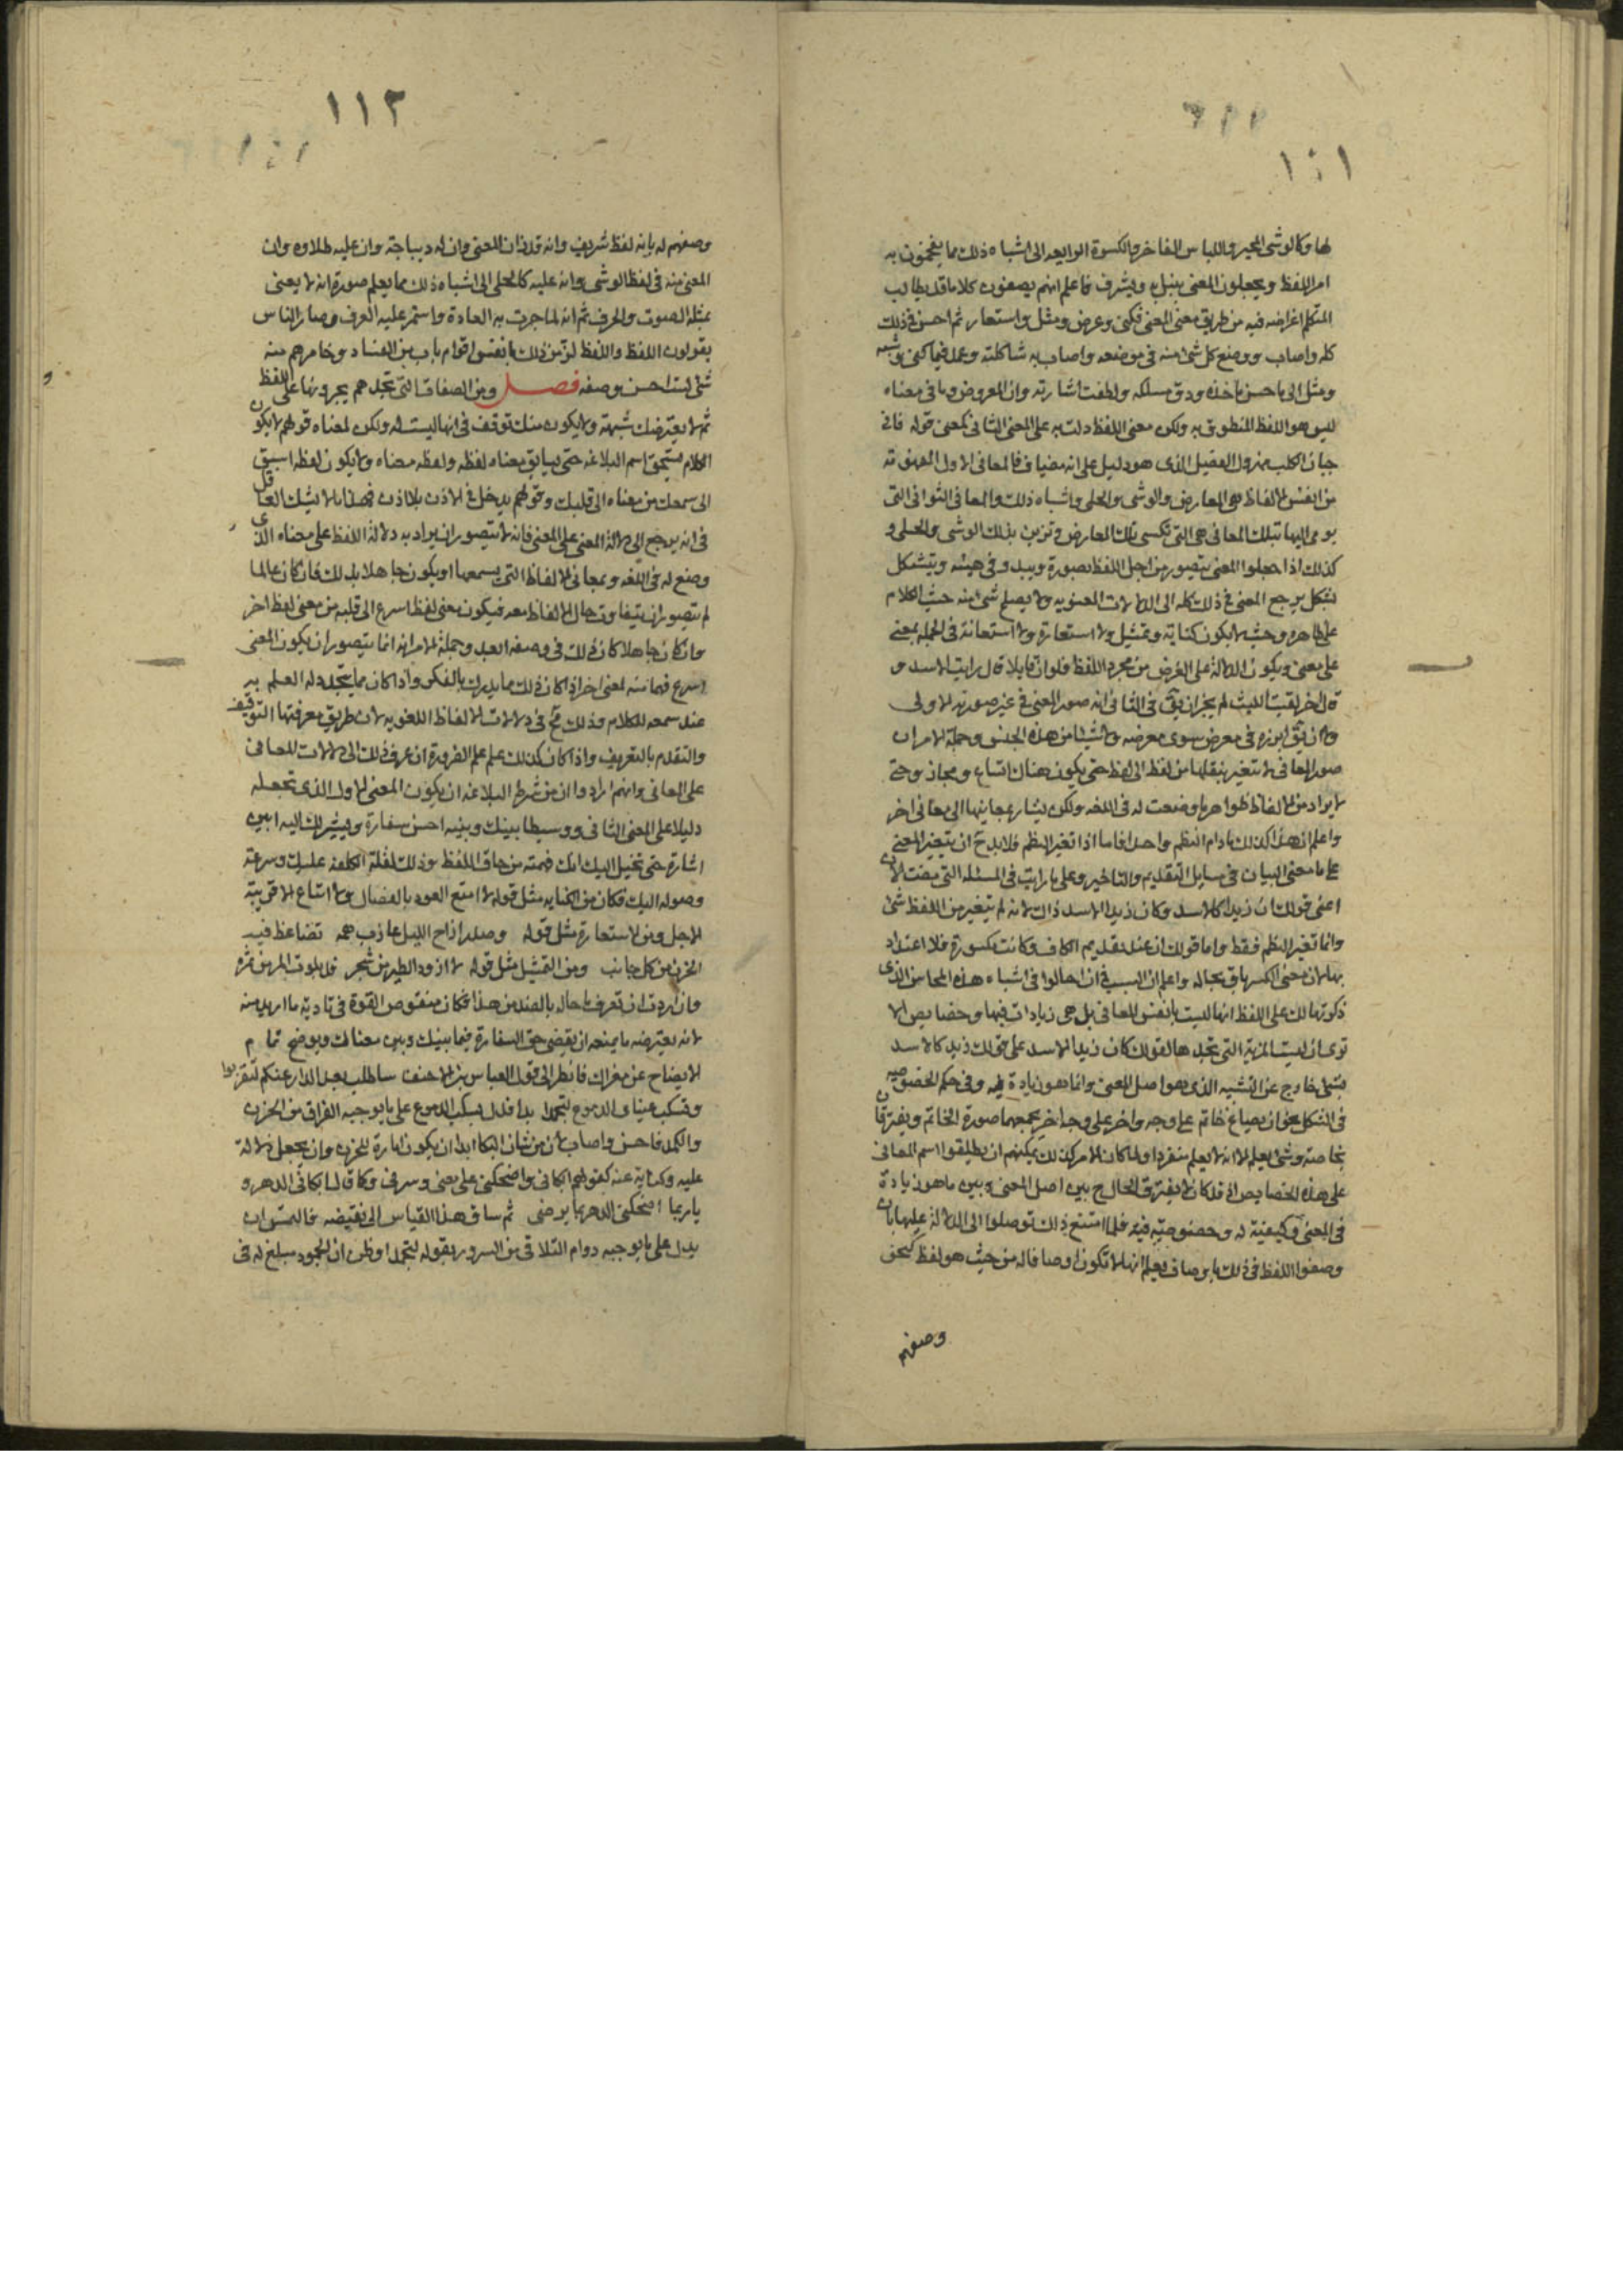 ١١١
لها وكالوشى المحبر واللباس الفاخر والكسوة الرايعه الى اشباه ذلك مما يفخمون به
امر اللفظ ويجعلون المعنى ينبل به ويشرف فاعلم انهم يصفون كلاما قد يطالب
المتكلم اغراضه فيه من طريق معنى المعنى فكنى وعرض ومثل واستعار ثم احسن فى ذلك
كله واصاب ووضع كل شئ منه فى موضعه واصاب به شاكلته وعمد فيما كنى به وشبه
ومثل الى ما حسن ماخذه ودق مسلكه ولطفت اشارته وان المعروض وما فى معناه
ليس هو اللفظ المنطوق به ولكن معنى اللفظ دلت به على المعنى الثانى كمعنى قوله فانى
جبان الكلب مهزول الفصيل الذى هو دليل على انه مضياف فالمعانى الاول المفهومة
من انفس الالفاظ هى المعارض والوشى والحلى واشباه ذلك والمعانى الثوانى التى
يومى اليها بتلك المعانى هى التى تكسى تلك المعارض وتزين بذلك الوشى والحلى و
كذلك اذا جعلوا المعنى يتصور من اجل اللفظ بصورة ويبدو فى هيئه ويتشكل
بشكل يرجع المعنى فى ذلك كله الى الدلالات المعنويه ولا يصلح شئ منه حيث الكلام
على ظاهره وحيث لا يكون كناية وتمثيل ولا استعارة ولا استعانة فى الجملة بمعنى
على معنى ويكون الدلالة على الغرض من مجرد اللفظ فلو ان قايلا قال رايت الاسد و
قال اخر لقيت الليث لم يجز ان يق فى الثانى انه صور المعنى فى غير صورته الاولى
ولا ان يق ابرزه فى معرض سوى معرضه ولا شيئا من هذه الجنس وجملة الامر ان
صور المعانى لا تتغير بنقلها من لفظ الى لفظ حتى يكون هناك اتساع ومجاز وحتى
لا يراد من الالفاظ ظواهر ما وضعت له فى اللغه ولكن يشار بمعانيها الى معانى اخر
واعلم ان هذا كذلك مادام النظم واحدا فاما اذا تغير النظم فلابد ح ان يتغير المعنى
على ما مضى البيان فى مسايل التقديم والتاخير وعلى ما رايت فى المسئله التى مضت الان
اعنى قولك ان زيدا كالاسد وكان زيدا الاسد ذاك لانه لم يتغير من اللفظ شئ
وانما تغير النظم فقط واما قولك ان عند تقديم الكاف وكانت مكسورة فلا اعتداد
بها لان معنى الكسر باق بحاله واعلم ان السبب فى ان احالوا فى اشباه هذه المحاسن الذى
ذكرتها لك على اللفظ انها ليست بانفس المعانى بل هى زيادات فيها وخصايص الا
ترى ان ليست المزية التى تجدها لقولك كان زيدا الاسد على قولك زيد كالاسد
بشئ خارج عن التشبيه الذى هو اصل المعنى وانما هو زيادة فيه وفى حكم الخصوصيه
فى الشكل نحو ان يصاغ خاتم على وجه واخر على وجه اخر يجمعهما صورة الخاتم ويفترقان
بخاصة وشئ يعلم الا انه لا يعلم منفردا ولما كان الامر كذلك لم يمكنهم ان يطلقوا اسم المعانى
على هذه الخصايص اذ قد كان لا يفترق الحال ح بين اصل المعنى وبين ما هو زيادة
فى المعنى وكيفية له وخصوصيه فيه فلما امتنع ذلك توصلوا الى الدلالة عليها بان
وصفوا اللفظ فى ذلك باوصاف يعلم انها لا تكون اوصافا له من حيث هو لفظ كنحو
وصفهم
١١٢
وصفهم له بانه لفظ شريف وانه قد زان المعنى وان له ديباجة وان عليه طلاوه وان
المعنى منه فى لفظ الوشى وانه عليه كالحلى الى اشباه ذلك مما يعلم ضرورة انه لا يعنى
بمثله الصوت والحرف ثم انه لما جرت به العادة واستمر عليه العرف وصار الناس
يقولون اللفظ واللفظ لزّ من ذلك بانفس اقوام باب من الفساد وخامرهم منه
شئ لست احسن وصفه فصل ومن الصفات التى تجدهم يجرونها على اللفظ
ثم لا يعترضك شبهة ولا يكون منك توقف فى انها ليست له ولكن لمعناه قولهم لا يكون
الكلام يستحق اسم البلاغه حتى يسابق معناه لفظه ولفظه معناه ولا يكون لفظه اسبق
الى سمعك من معناه الى قلبك وقولهم يدخل فى الاذن بلا اذن فهذا ما لا يشك العاقل
فى انه يرجع الى دلالة المعنى على المعنى فانه لا يتصور ان يراد به دلالة اللفظ على معناه الذى
وضع له فى اللغه وبمعانى الالفاظ التى يسمعها او يكون جاهلا بذلك فان كان عالما
لم يتصور ان يتفاوت حال الالفاظ معه فيكون معنى لفظ اسرع الى قلبه من معنى لفظ اخر
وان كان جاهلا كان ذلك فى وصفه ابعد وجملة الامر انه انما يتصور ان يكون المعنى
اسرع فهما منه لمعنى اخر اذا كان ذلك مما يدرك بالفكر واذا كان مما يتجدد له العلم به
عند سمعه للكلام وذلك مح فى دلالات الالفاظ اللغويه لان طريق معرفتها التوقيف
والتقدم بالتعريف واذا كان كذلك علم علم الضرورة ان عرف ذلك الى دلالات المعانى
على المعانى وانهم ارادوا ان من شرط البلاغه ان يكون المعنى الاول الذى تجعله
دليلا على المعنى الثانى ووسيطا بينك وبينه احسن سفارة ويشير لك اليه ابين
اشارة حتى تخيل اليك انك فهمته من حاق اللفظ وذلك لقلة الكلفه عليك وسرعة
وصوله اليك فكان من الكنايه مثل قوله لا امتع العود بالفصال ولا ابتاع الا قريبة
الاجل ومن الاستعارة مثل قوله وصدر اراح الليل عازب همه تضاعف فيه
الحزن من كل جانب ومن التمثيل مثل قوله لا اذود الطير من شجر قد بلوت المر من ثمره
وان اردت ان تعرف ما حاله بالضد من هذا فكان منقوص القوة فى تادية ما اريد منه
لانه يعترضه ما يمنعه ان يقضى حق السفارة فيما بينك وبين معناك ويوضح تمام
الايضاح عن مغزاك فانظر الى قول العباس بن الاحنف ساطلب بعد الدار عنكم لتقربوا
وتسكب عيناى الدموع لتجمدا بدا فدل بسكب الدموع على ما يوجبه الفراق من الحزن
والكمد فاحسن واصاب لان من شان البكا ابدا ان يكون امارة للحزن وان يجعل دلالة
عليه وكناية عنه كقولهم ابكانى واضحكنى على معنى وسرنى وكما قال ابكانى الدهر و
يا ربما اضحكنى الدهر بما يرضى ثم ساق هذا القياس الى نقيضه فالتمس ان
يدل على ما يوجبه دوام التلاقى من السرور بقوله لتجمدا وظن ان الجمود مبلغ له فى